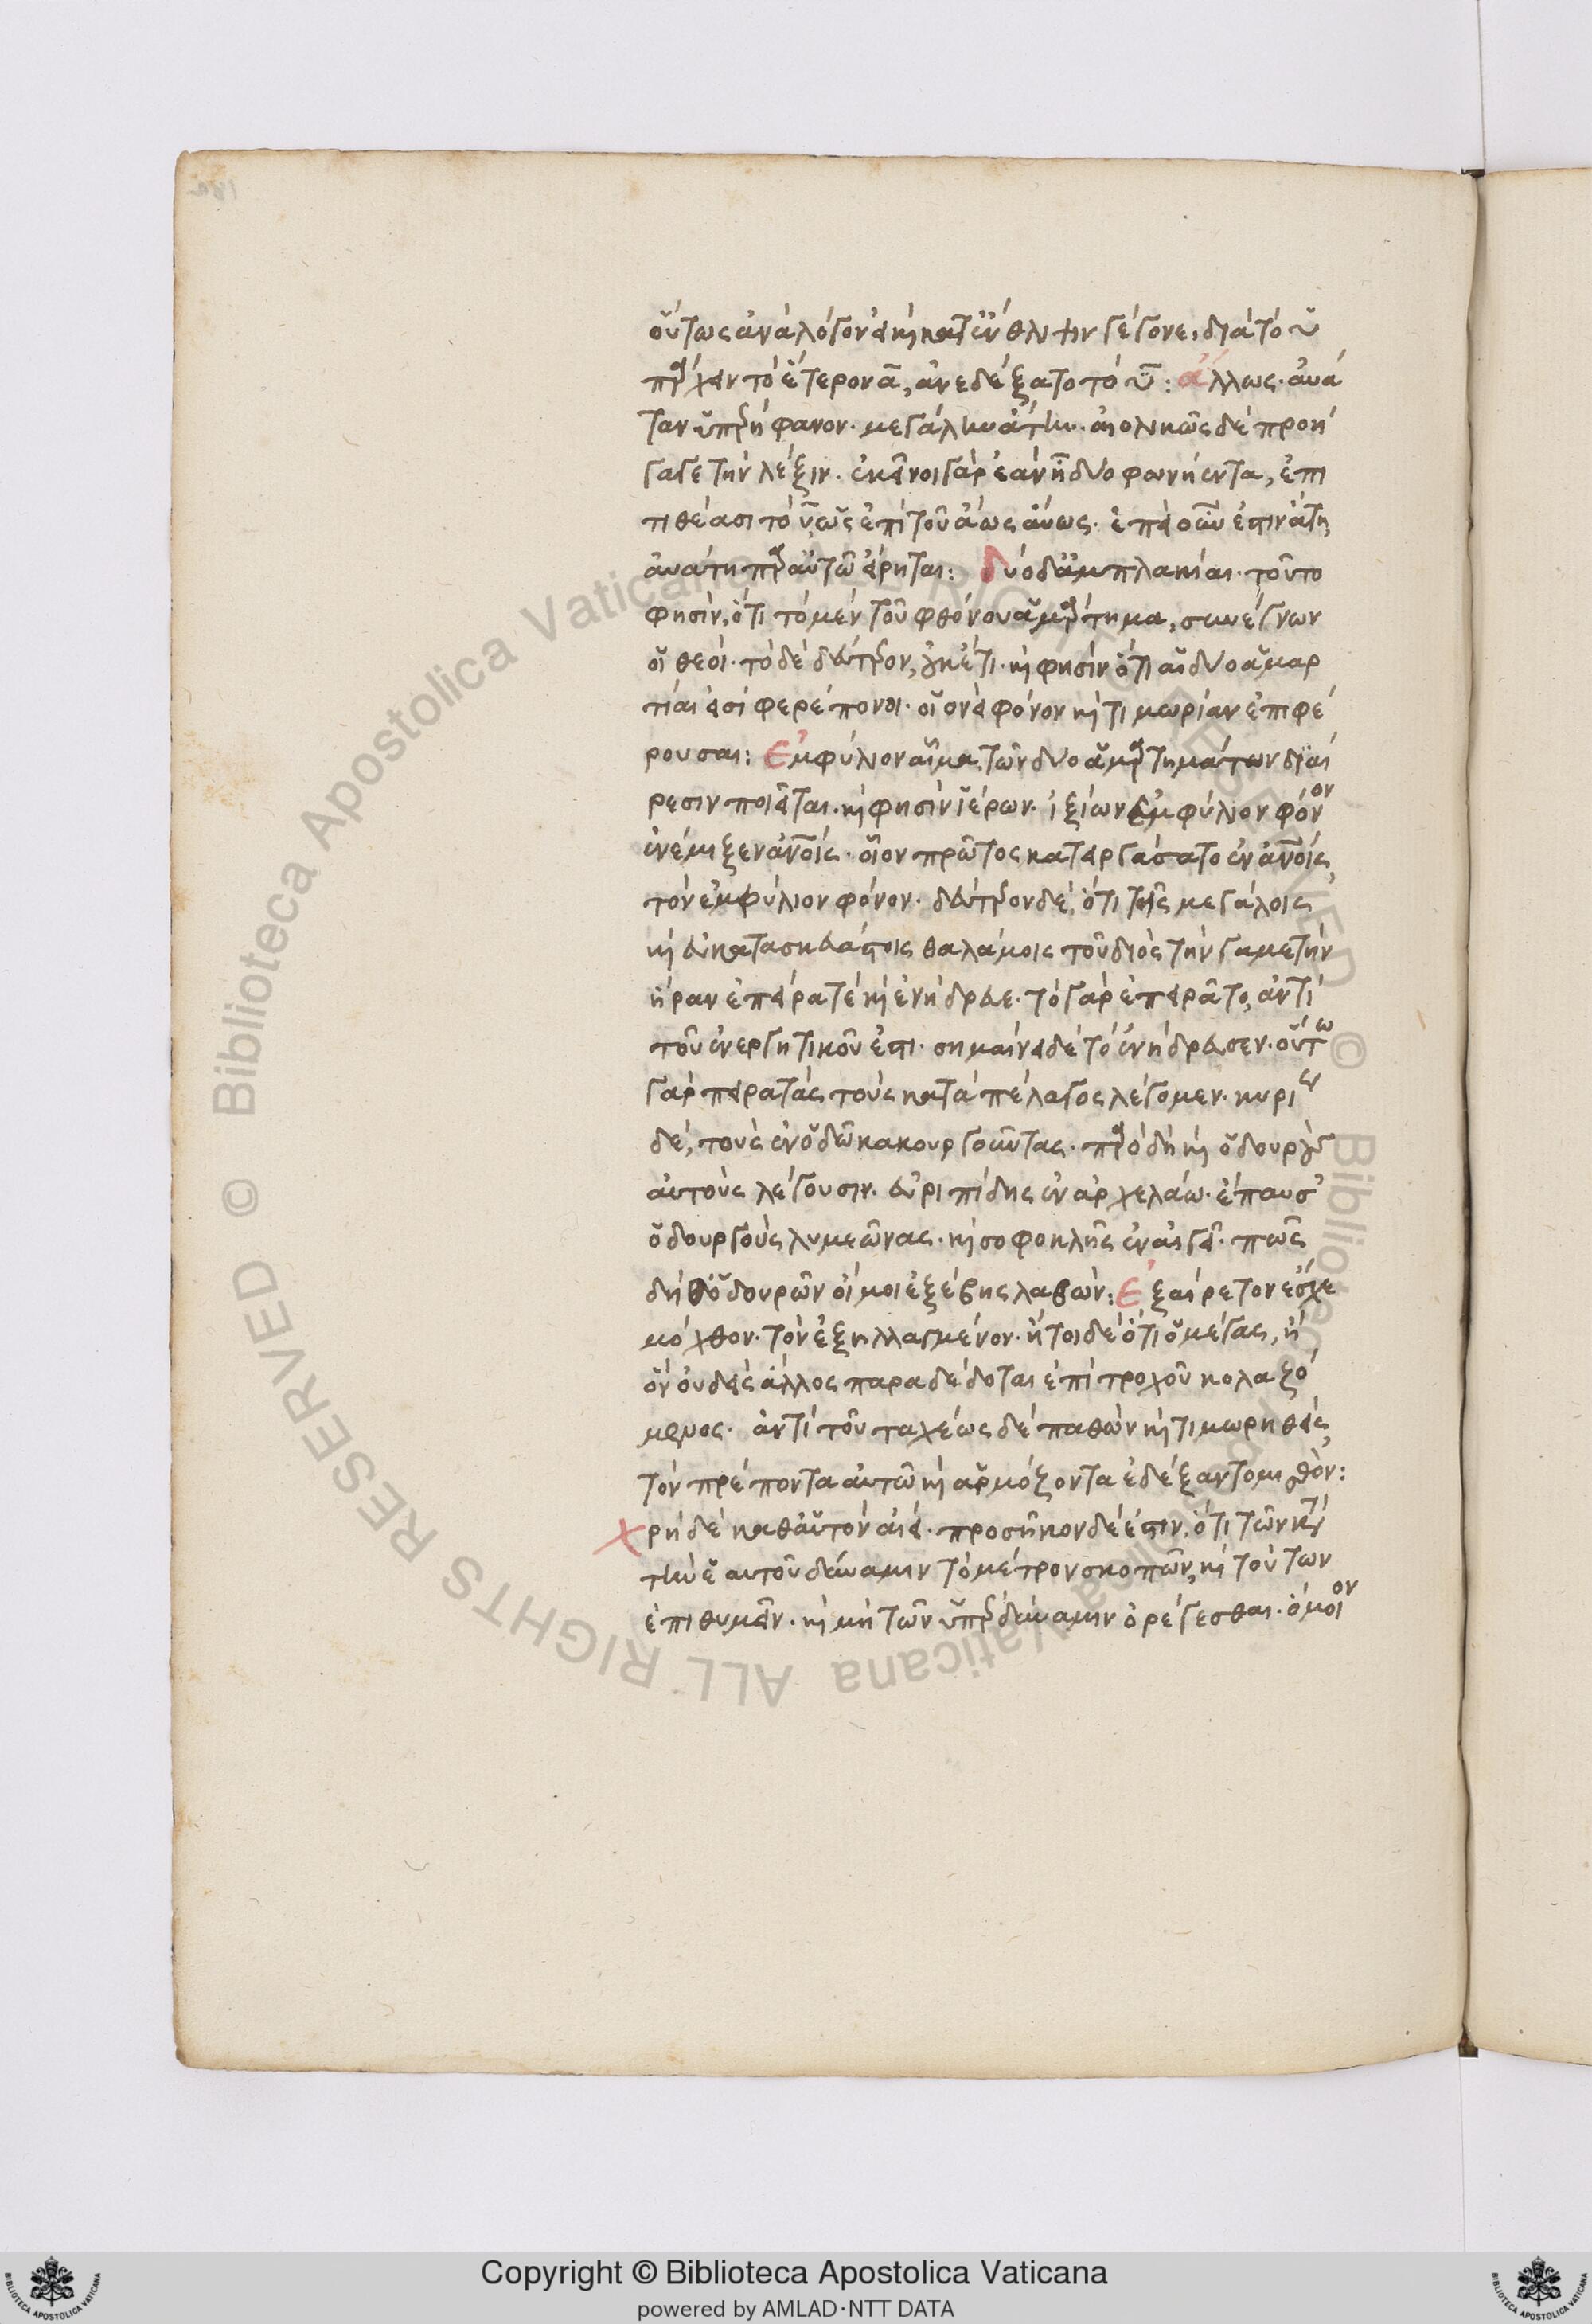 οὕτως ἀνάλογον εἰ κὴ κατ' ἔνθλιψιν γέγονε, διὰ τὸ ῡ
πρχειν τὸ ἕτερον ᾱ, ἀνεδέξατο τὸ ῡ: ἄλλως· ἀυά
ταν ὑπρήφανον· μεγάλην ἄτην· αἰολικῶς δὲ προή
γαγε τὴν λέξιν· ἐκεῖνοι γὰρ ἐὰν ῇ δύο φωνήεντα, ἐπι
τιθέασι τὸ ῡ, ὡς ἐπὶ τοῦ ἀὼς ἀύως· ἐπεὶ οὖν ἐστιν ἄτη,
ἀυάτη πρ αὐτῶ εἴρηται: δύο δ' ἀμπλακίαι· τοῦτο
φησὶν, ὅτι τὸ μὲν τοῦ φθόνου ἁμρτημα, συνέγνων
οἱ θεοί· τὸ δὲ δεύτρον, οὐκέτι· κὴ φησὶν ὅτι αἱ δύο ἁμαρ
τίαι εἰσὶ φερέπονοι· οἱονεὶ φόνον κὴ τιμωρίαν ἐπιφέ
ρουσαι: Ἐμφύλιον αἷμα, τῶν δύο ἁμρτημάτων διαί
ρεσιν ποιεῖται. κὴ φησὶν ἱέρων· ἰξίων ἐμφύλιον φόνον
ἐνέμιξεν ἀνοις· οἷον πρῶτος κατειργάσατο ἐν ἀνοις,
τὸν ἐμφύλιον φόνον· δεύτρον δὲ, ὅτι τοῖς μεγάλοις
κὴ εὐκατασκευάστοις θαλάμοις τοῦ διὸς τὴν γαμετὴν
ἥραν ἐπείρατέ κὴ ἐνήδρευε· τὸ γὰρ ἐπειρᾶτο, ἀντὶ
τοῦ ἐνεργητικοῦ ἐστι· σημαίνει δὲ τὸ ἐνήδρευσεν· οὕτω
γὰρ πειρατὰς τοὺς κατὰ πέλαγος λέγομεν· κυρίως
δὲ, τοὺς ἐν ὁδῶ κακουργοῦντας· πρ ὃ δὴ κὴ ὁδουργοὺς
αὐτοὺς λέγουσιν. εὐριπίδης ἐν ἀρχελάω· ἔπαυσ'
ὁδουργοὺς λυμεῶνας· κὴ σοφοκλῆς ἐν αἰγεῖ· πῶς
δὴ ὁδουρῶν οἵμοι ἐξέβης λαβών: Ἐξαίρετον ἔσχε
μόχθον· τὸν ἐξηλλαγμένον· ἤτοι δὲ ὅτι ὁ μέγας, ἢ
ὃν οὐδεὶς ἄλλος παραδέδοται ἐπὶ τροχοῦ κολαζό
μενος· ἀντὶ τοῦ ταχέως δὲ παθὼν κὴ τιμωρηθεὶς,
τὸν πρέποντα αὐτῶ κὴ ἁρμόζοντα ἐδέξαντο μισθόν:
χρὴ δὲ καθ' αὑτὸν αἰεί· προσῆκον δέ ἐστιν, ὅτι τῶν κτ
τὴν ἑαυτοῦ δύναμιν τὸ μέτρον σκοπῶν, κὴ τούτων
ἐπιθυμεῖν· κὴ μὴ τῶν ὑπρ δύναμιν ὀρέγεσθαι· ὅμοιον
Copyright © Biblioteca Apostolica Vaticana
powered by AMLAD·NTT DATA